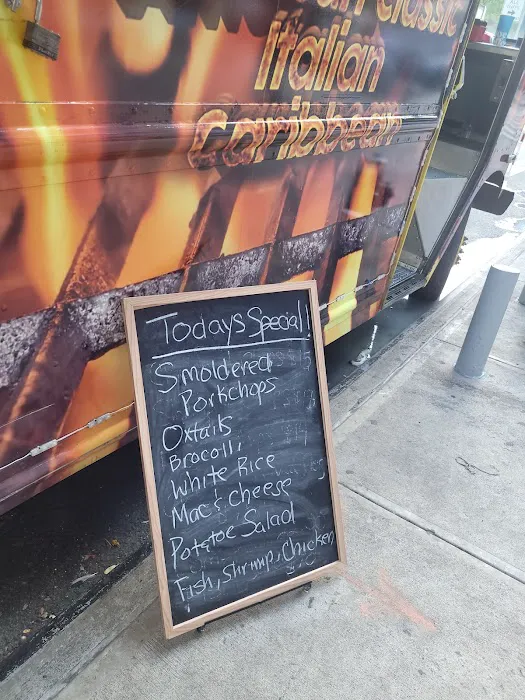 Classic
Italian
Caribbean
Todays Special
Smoldered
Porkchops
Oxtails
Brocolli
White Rice
Mac & Cheese
Potatoe Salad
Fish, Shrimp, Chicken